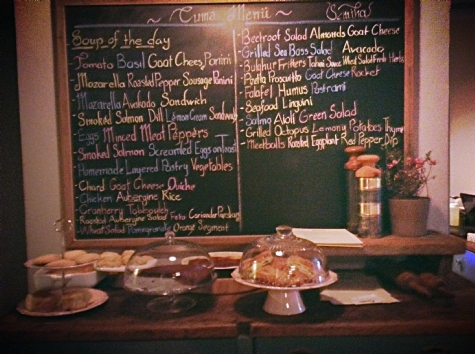 ~ Cuma Menü ~
Soup of the day
Tomato Basil Goat Chees Panini
Mazarella Roasted Pepper Sausage Panini
Mazarella Avakado Sandwich
Smoked Salmon Dill Lemon Cream Sandwich
Eggs Minced Meat Peppers
Smoked Salmon Scrambled Eggs on Toast
Homemade Layered Pastry Vegetables
- Chard Goat Cheese Quiche
- Chicken Aubergine Rice
- Cranberry
Roasted Aubergine Salad Feta Coriander
- Wheat Salad Pomegranate Orange Segment
- Beetroot Salad Almonds Goat Cheese
- Grilled Sea Bass Salad Avocado
- Bulghur Fritters Tahini Sauce
- Pasta Proscuitto Goat Cheese Rocket
- Falafel Humus Pastrami
- Seafood Linguini
- Aioli Green Salad
- Grilled Octopus Lemony Potatoes Thyme
- Meatballs Roasted Eggplant Red Pepper Dip